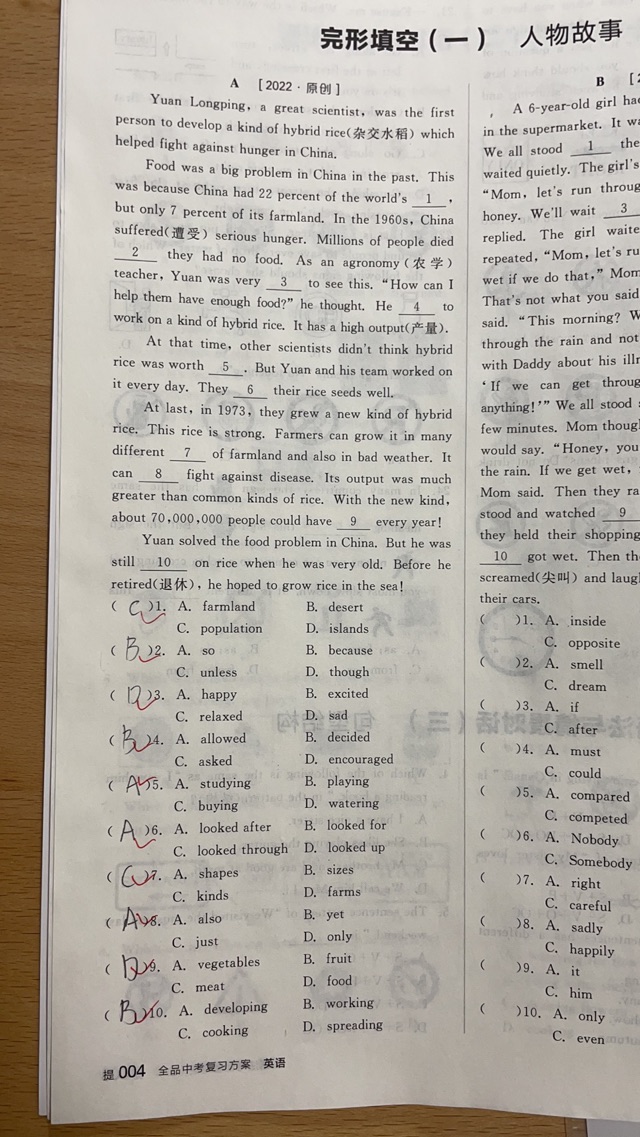 完形填空(一) 人物故事
A [2022·原创]
Yuan Longping, a great scientist, was the first
person to develop a kind of hybrid rice(杂交水稻) which
helped fight against hunger in China.
Food was a big problem in China in the past. This
was because China had 22 percent of the world's 1 ,
but only 7 percent of its farmland. In the 1960s, China
suffered(遭受) serious hunger. Millions of people died
2 they had no food. As an agronomy(农学)
teacher, Yuan was very 3 to see this. "How can I
help them have enough food?" he thought. He 4 to
work on a kind of hybrid rice. It has a high output(产量).
At that time, other scientists didn't think hybrid
rice was worth 5 . But Yuan and his team worked on
it every day. They 6 their rice seeds well.
At last, in 1973, they grew a new kind of hybrid
rice. This rice is strong. Farmers can grow it in many
different 7 of farmland and also in bad weather. It
can 8 fight against disease. Its output was much
greater than common kinds of rice. With the new kind,
about 70,000,000 people could have 9 every year!
Yuan solved the food problem in China. But he was
still 10 on rice when he was very old. Before he
retired(退休), he hoped to grow rice in the sea!
( C )1. A. farmland B. desert
C. population D. islands
( B )2. A. so B. because
C. unless D. though
( D )3. A. happy B. excited
C. relaxed D. sad
( B )4. A. allowed B. decided
C. asked D. encouraged
( A )5. A. studying B. playing
C. buying D. watering
( A )6. A. looked after B. looked for
C. looked through D. looked up
( C )7. A. shapes B. sizes
C. kinds D. farms
( A )8. A. also B. yet
C. just D. only
( D )9. A. vegetables B. fruit
C. meat D. food
( B )10. A. developing B. working
C. cooking D. spreading
提 004 全品中考复习方案 英语
B [2
A 6-year-old girl ha
in the supermarket. It wa
We all stood 1 the
waited quietly. The girl's
"Mom, let's run throug
honey. We'll wait 3
replied. The girl waite
repeated, "Mom, let's ru
wet if we do that," Mom
That's not what you said
said. "This morning? W
through the rain and not
with Daddy about his illn
'If we can get throug
anything!'" We all stood
few minutes. Mom though
would say. "Honey, you
the rain. If we get wet,
Mom said. Then they ra
stood and watched 9
they held their shopping
10 got wet. Then th
screamed(尖叫) and laug
their cars.
( )1. A. inside
C. opposite
( )2. A. smell
C. dream
( )3. A. if
C. after
( )4. A. must
C. could
( )5. A. compared
C. competed
( )6. A. Nobody
C. Somebody
( )7. A. right
C. careful
( )8. A. sadly
C. happily
( )9. A. it
C. him
( )10. A. only
C. even